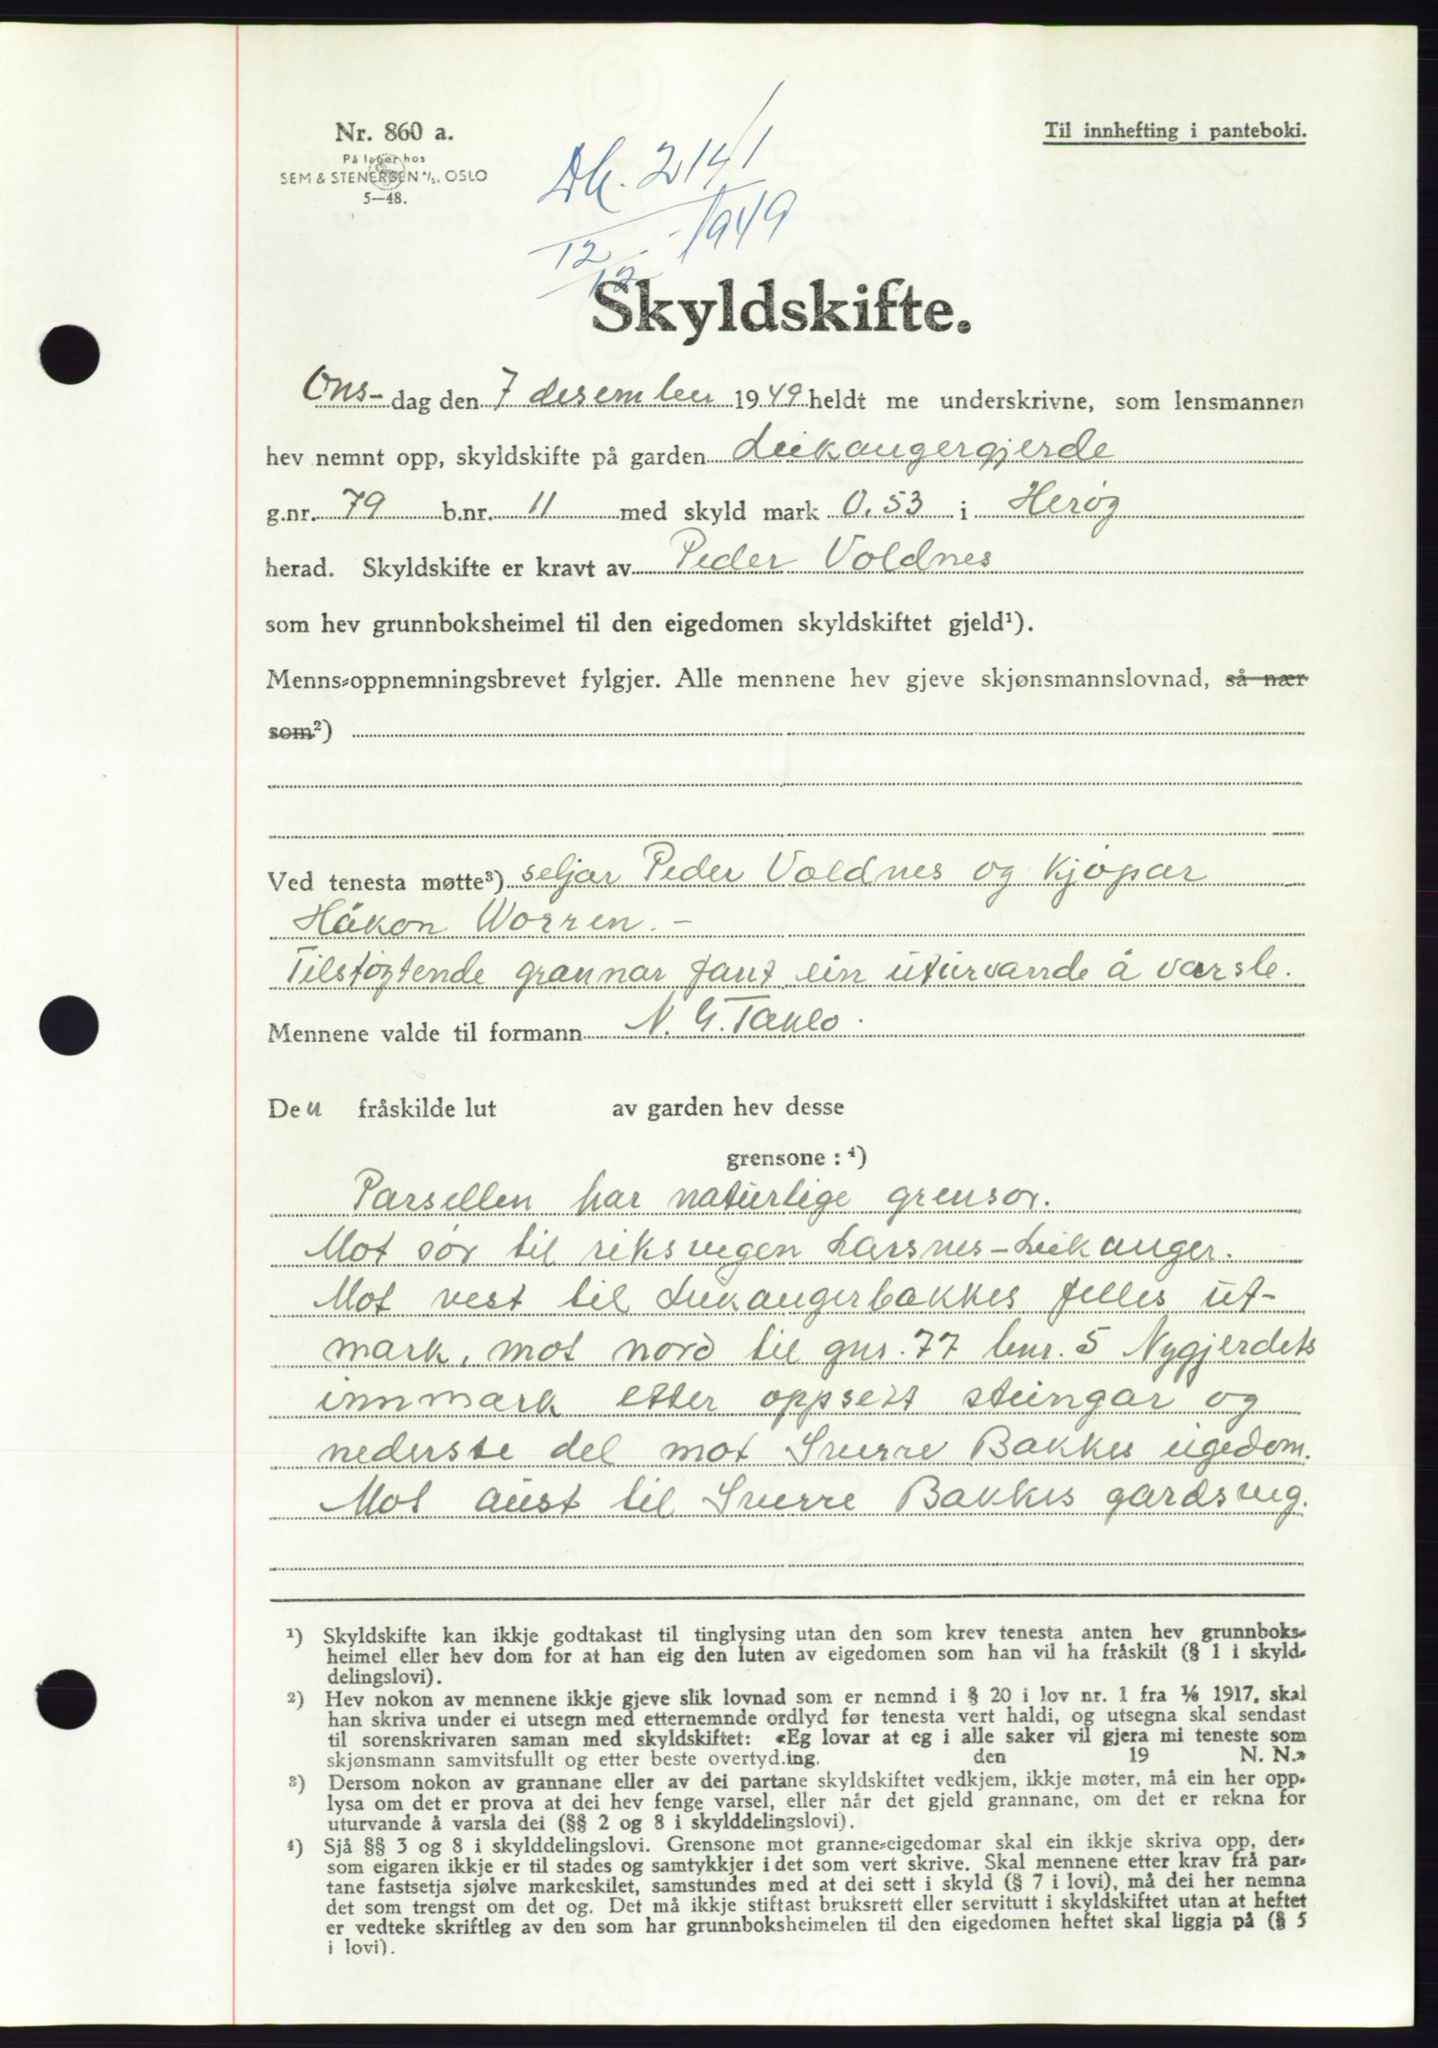 Nr. 860 a.
På lager hos
SEM & STENERSEN A/S, OSLO
5—48.
Til innhefting i panteboki.
Dk. 2141
12/12 - 1949
Skyldskifte.
Ons- dag den 7 desember 1949 heldt me underskrivne, som lensmannen
hev nemnt opp, skyldskifte på garden Leikangergjerde
g.nr. 79 b.nr. 11 med skyld mark 0.53 i Herøy
herad. Skyldskifte er kravt av Peder Voldnes
som hev grunnboksheimel til den eigedomen skyldskiftet gjeld¹).
Menns-oppnemningsbrevet fylgjer. Alle mennene hev gjeve skjønsmannslovnad, så nær
som²)
Ved tenesta møtte³) seljar Peder Voldnes og kjøpar
Håkon Worren. -
Tilstøytende grannar fant ein uturvande å varsle.
Mennene valde til formann N. G. Taklo.
Den fråskilde lut av garden hev desse
grensone : ⁴)
Parsellen har naturlige grensor.
Mot sør til riksvegen Larsnes-Leikanger.
Mot vest til Leikangerbakkes felles ut-
mark, mot nord til gnr. 77 bnr. 5 Nygjerdets
innmark etter oppsett steingar og
nederste del mot Sverre Bakkes eigedom.
Mot aust til Sverre Bakkes gardsveg.
¹) Skyldskifte kan ikkje godtakast til tinglysing utan den som krev tenesta anten hev grunnboks-
heimel eller hev dom for at han eig den luten av eigedomen som han vil ha fråskilt (§ 1 i skyld-
delingslovi).
²) Hev nokon av mennene ikkje gjeve slik lovnad som er nemnd i § 20 i lov nr. 1 fra 1/6 1917, skal
han skriva under ei utsegn med etternemnde ordlyd før tenesta vert haldi, og utsegna skal sendast
til sorenskrivaren saman med skyldskiftet: «Eg lovar at eg i alle saker vil gjera mi teneste som
skjønsmann samvitsfullt og etter beste overtyd.ing. den 19 N. N.»
³) Dersom nokon av grannane eller av dei partane skyldskiftet vedkjem, ikkje møter, må ein her opp-
lysa om det er prova at dei hev fenge varsel, eller når det gjeld grannane, om det er rekna for
uturvande å varsla dei (§§ 2 og 8 i skylddelingslovi).
⁴) Sjå §§ 3 og 8 i skylddelingslovi. Grensone mot granne-eigedomar skal ein ikkje skriva opp, der-
som eigaren ikkje er til stades og samtykkjer i det som vert skrive. Skal mennene etter krav frå par-
tane fastsetja sjølve markeskilet, samstundes med at dei sett i skyld (§ 7 i lovi), må dei her nemna
det som trengst om det og. Det må ikkje stiftast bruksrett eller servitutt i skyldskiftet utan at heftet
er vedteke skriftleg av den som har grunnboksheimelen til den eigedomen heftet skal liggja på (§ 5
i lovi).